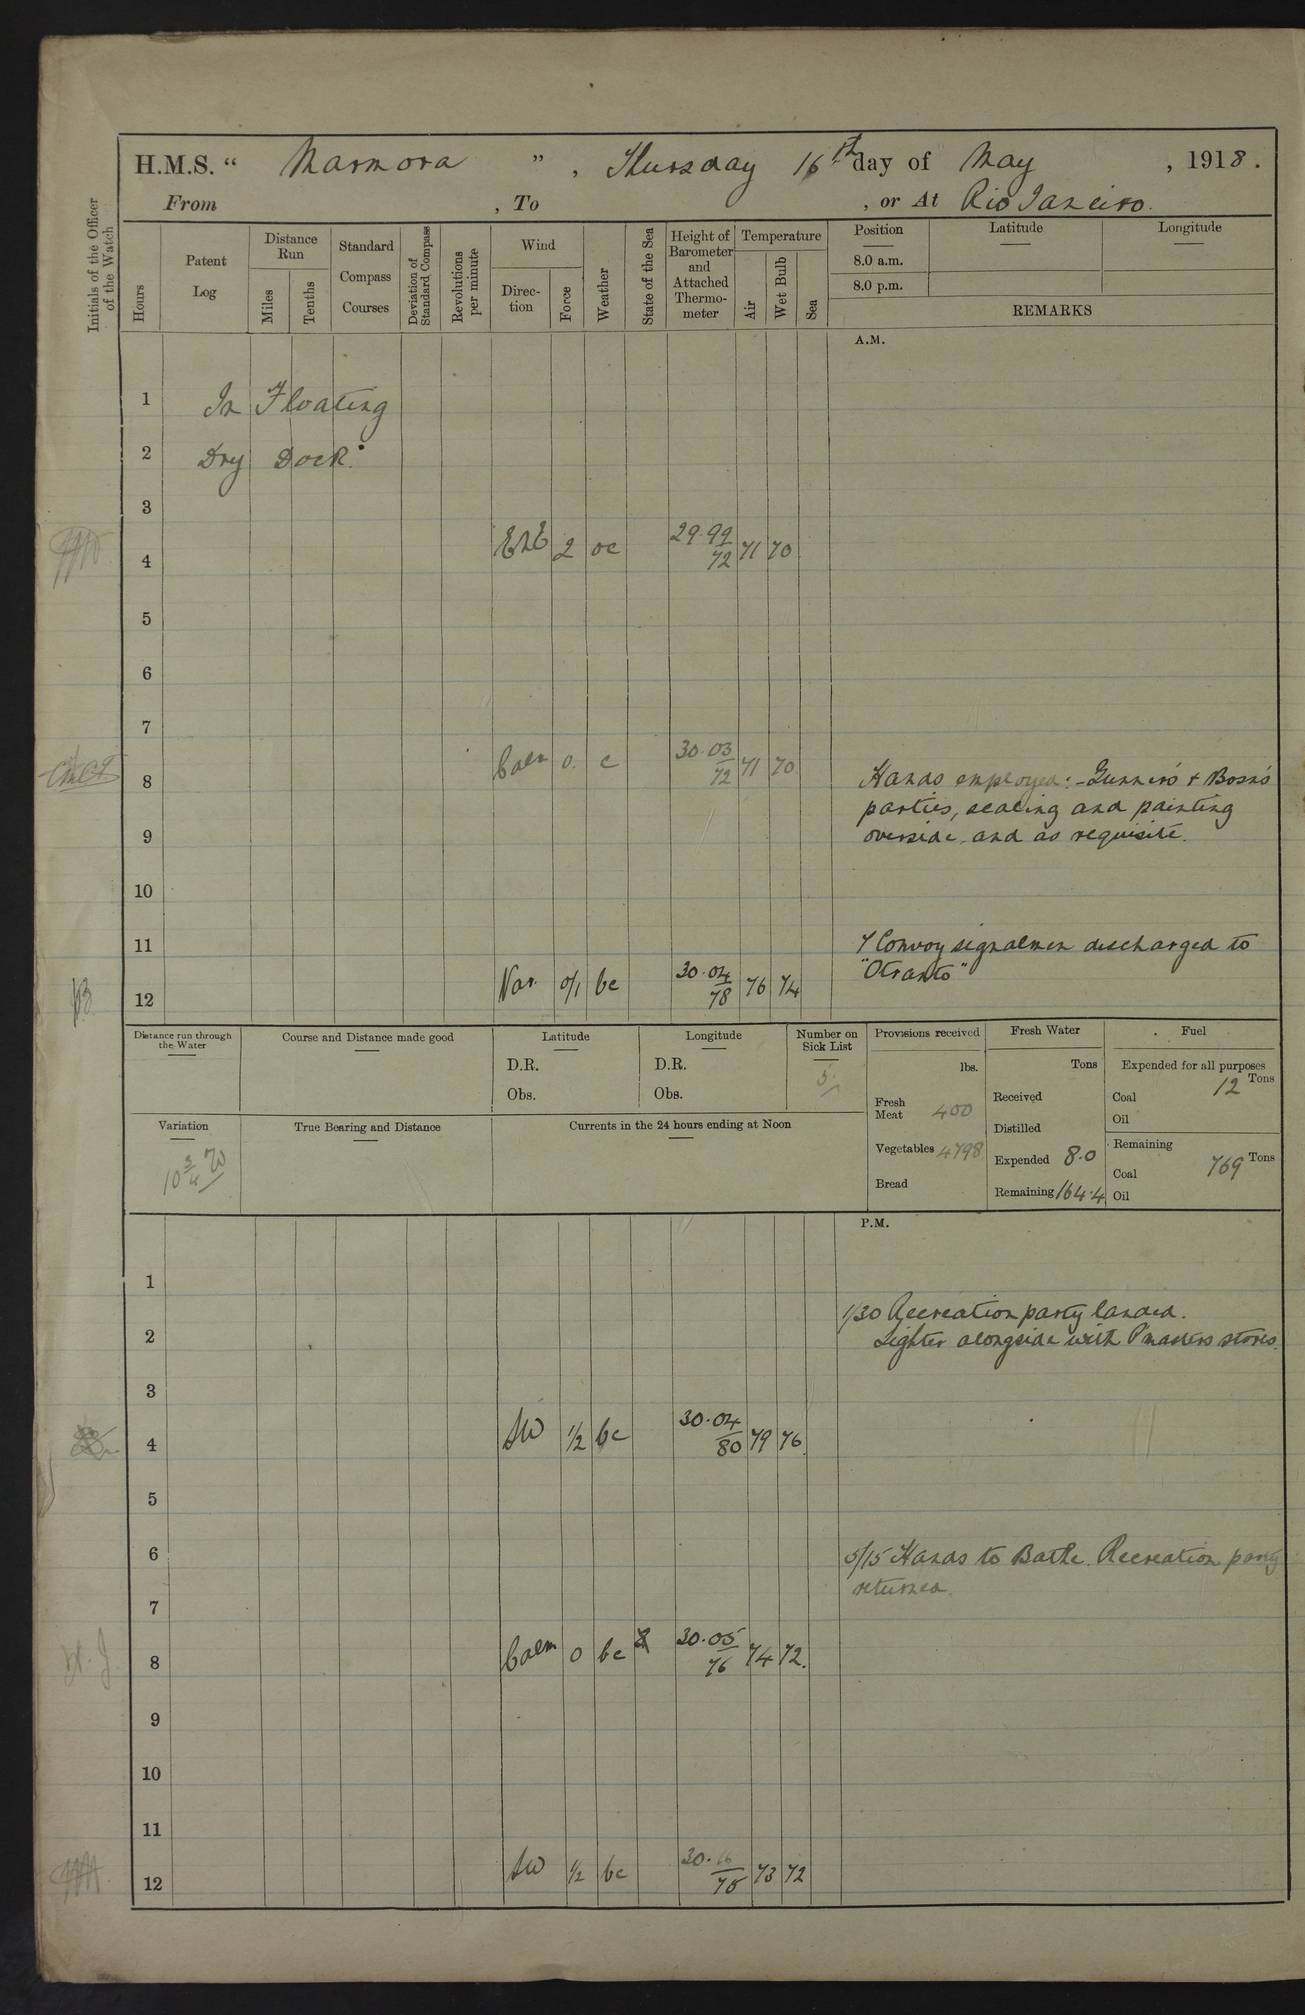 H.M.S. “ Marmora ” , Thursday 16th day of May , 1918.
From , To , or At Rio Janeiro.
Initials of the Officer of the Watch
Hours
Patent Log
Distance Run
Miles
Tenths
Standard Compass Courses
Deviation of Standard Compass
Revolutions per minute
Wind
Direction
Force
Weather
State of the Sea
Height of Barometer and Attached Thermometer
Temperature
Air
Wet Bulb
Sea
Position Latitude Longitude
8.0 a.m.
8.0 p.m.
REMARKS
A.M.
1 In Floating
2 Dry Dock.
3
4 ENE 2 oc 29.99 72 71 70
5
6
7
8 Calm 0. c 30.03 72 71 70 Hands employed:- Gunner's & Bosns
parties, scaling and painting
9 overside, and as requisite.
10
11 7 Convoy signalmen discharged to
"Otranto"
12 Var. 0/1 bc 30.04 78 76 74
Distance run through the Water
Course and Distance made good
Latitude
D.R.
Obs.
Longitude
D.R.
Obs.
Number on Sick List
5.
Provisions received
lbs.
Fresh Meat 400
Vegetables 4798
Bread
Fresh Water
Tons
Received
Distilled
Expended 8.0
Remaining 164.4
Fuel
Expended for all purposes
Coal 12 Tons
Oil
Remaining
Coal 769 Tons
Oil
Variation
10 3/4 W
True Bearing and Distance
Currents in the 24 hours ending at Noon
P.M.
1
1/30 Recreation party landed.
2 Lighter alongside with P'masters stores.
3
4 SW 1/2 bc 30.04 80 79 76
5
6 5/15 Hands to Bathe. Recreation party
returned.
7
8 Calm 0 bc 30.05 76 74 72.
9
10
11
12 SW 1/2 bc 30.16 75 73 72